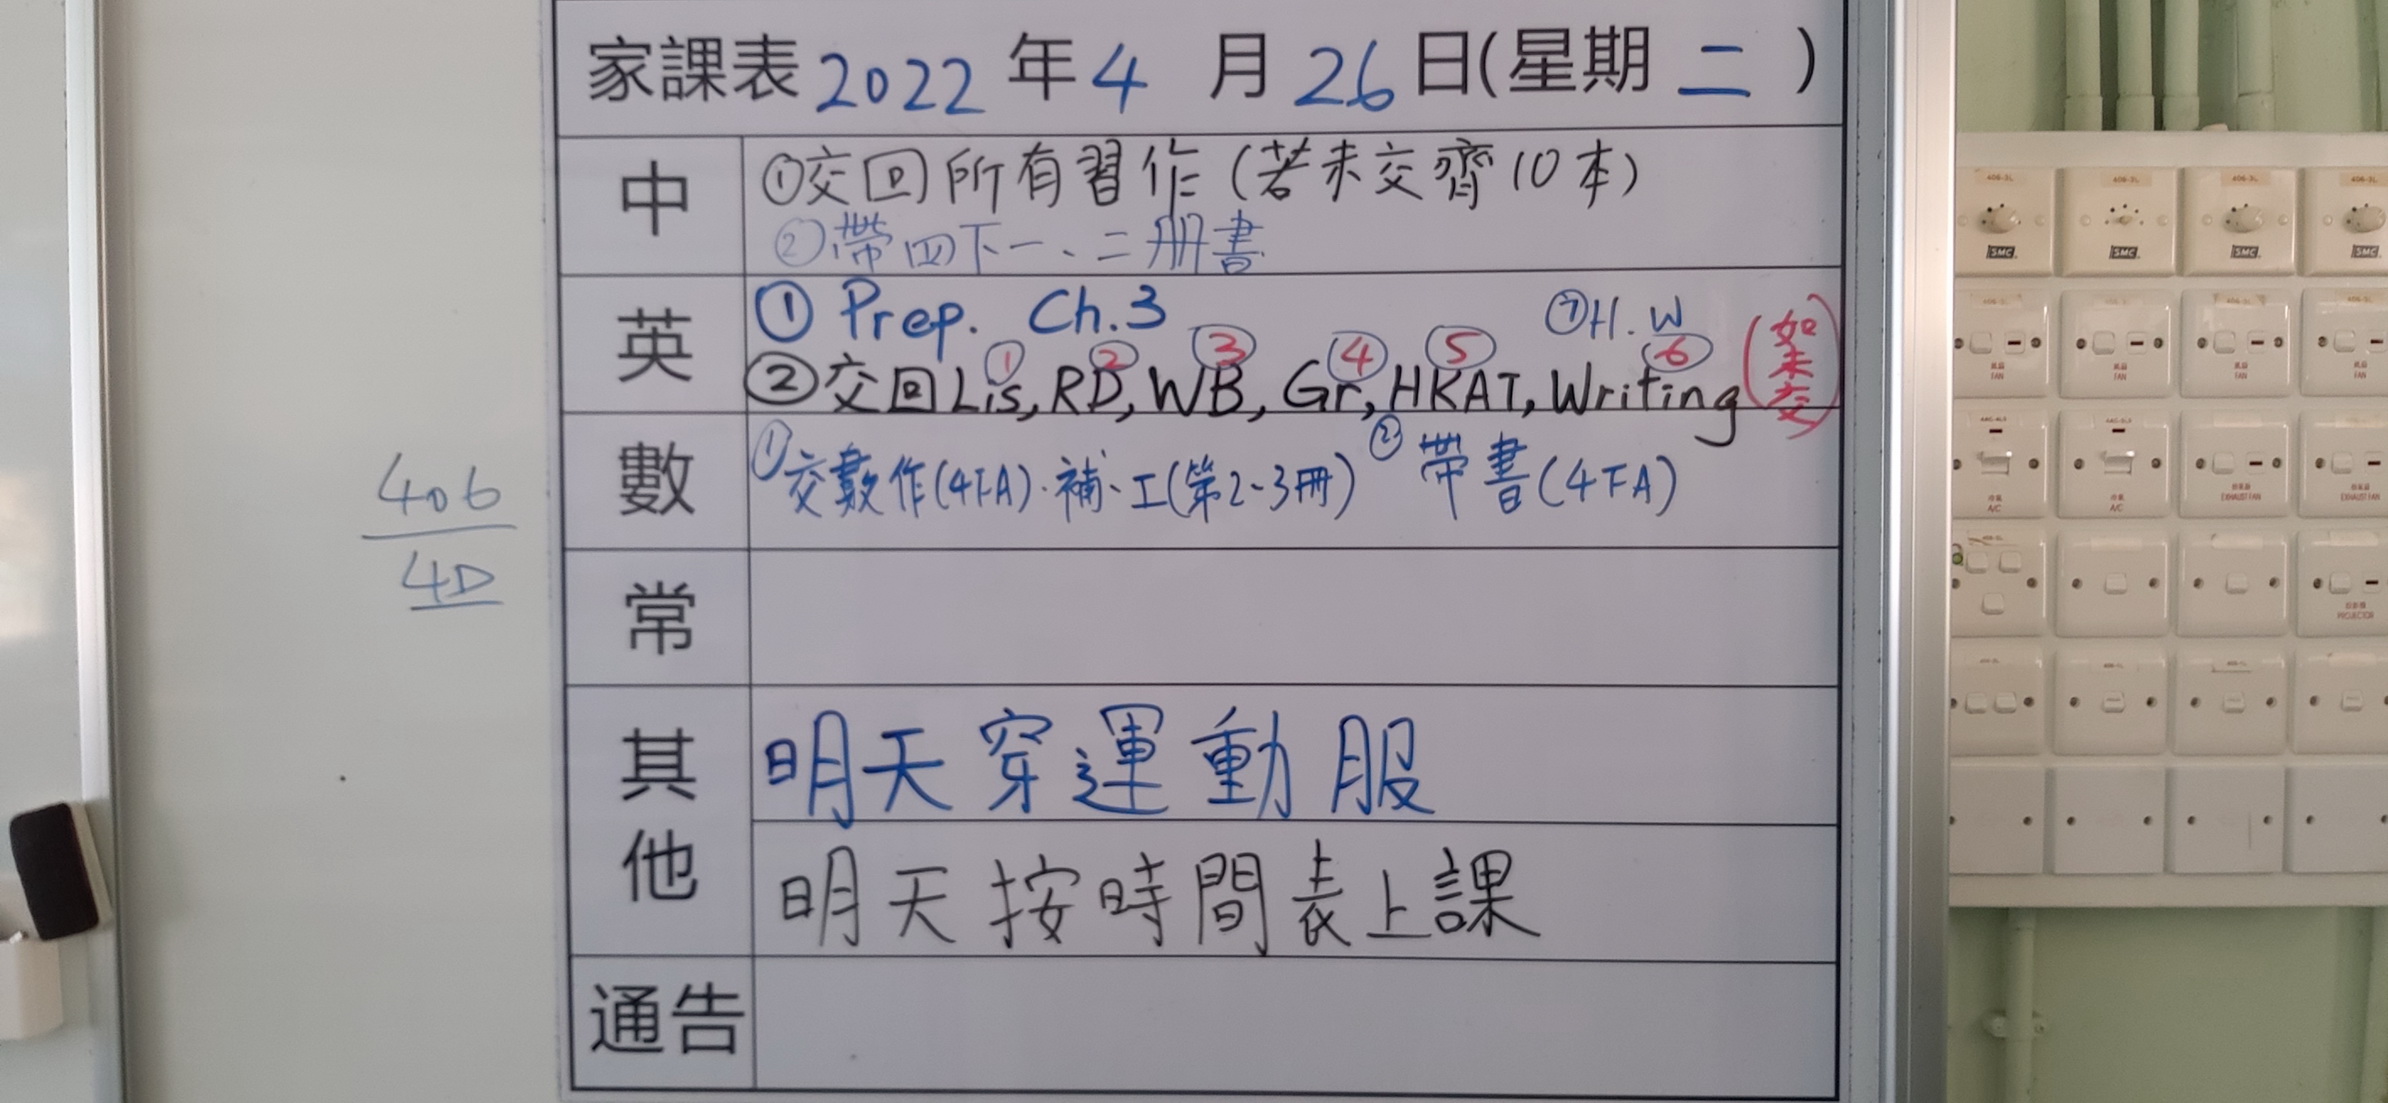 家課表 2022 年 4 月 26 日(星期 二 )
中
①交回所有習作(若未交齊10本)
②帶四下一、二冊書
英
① Prep. Ch.3 ⑦H.W
① ② ③ ④ ⑤ ⑥
②交回Lis, RD, WB, Gr, HKAT, Writing (如未交)
數
①交數作(4下A)、補、工(第2-3冊) ②帶書(4下A)
常
其他
明天穿運動服
明天按時間表上課
通告
406
4D
SMC SMC SMC SMC
FAN FAN FAN FAN
A/C A/C EXHAUST FAN EXHAUST FAN
PROJECTOR